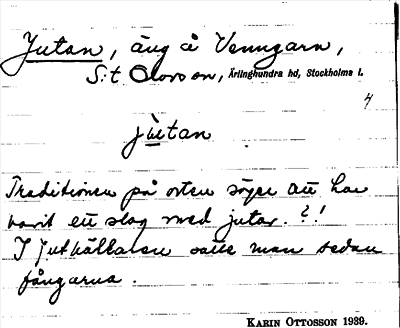 Jutan, äng å Venngarn,
S:t Olovson, Ärlinghundra hd, Stockholms l.
4
jùtan
Traditionen på orten säger att här
varit ett slag med jutar. ?!
I Jutkällaren satte man sedan
fångarna.
KARIN OTTOSSON 1939.